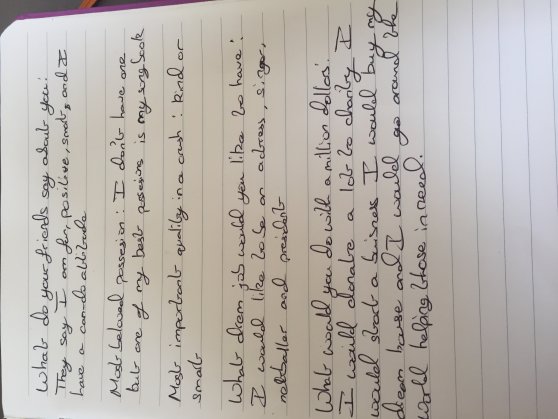 What do your friends say about you:
They say I am fun, positive, smart, and I
have a can-do attitude
Most beloved possesion: I don't have one
but one of my best possesions is my song book
Most important quality in a crush: kind or
smart
What dream job would you like to have:
I would like to be an actress, singer,
netballer and president
What would you do with a million dollars:
I would donate a lot to charity I
would start a buisness I would buy my
dream house and I would go around the
world helping those in need.